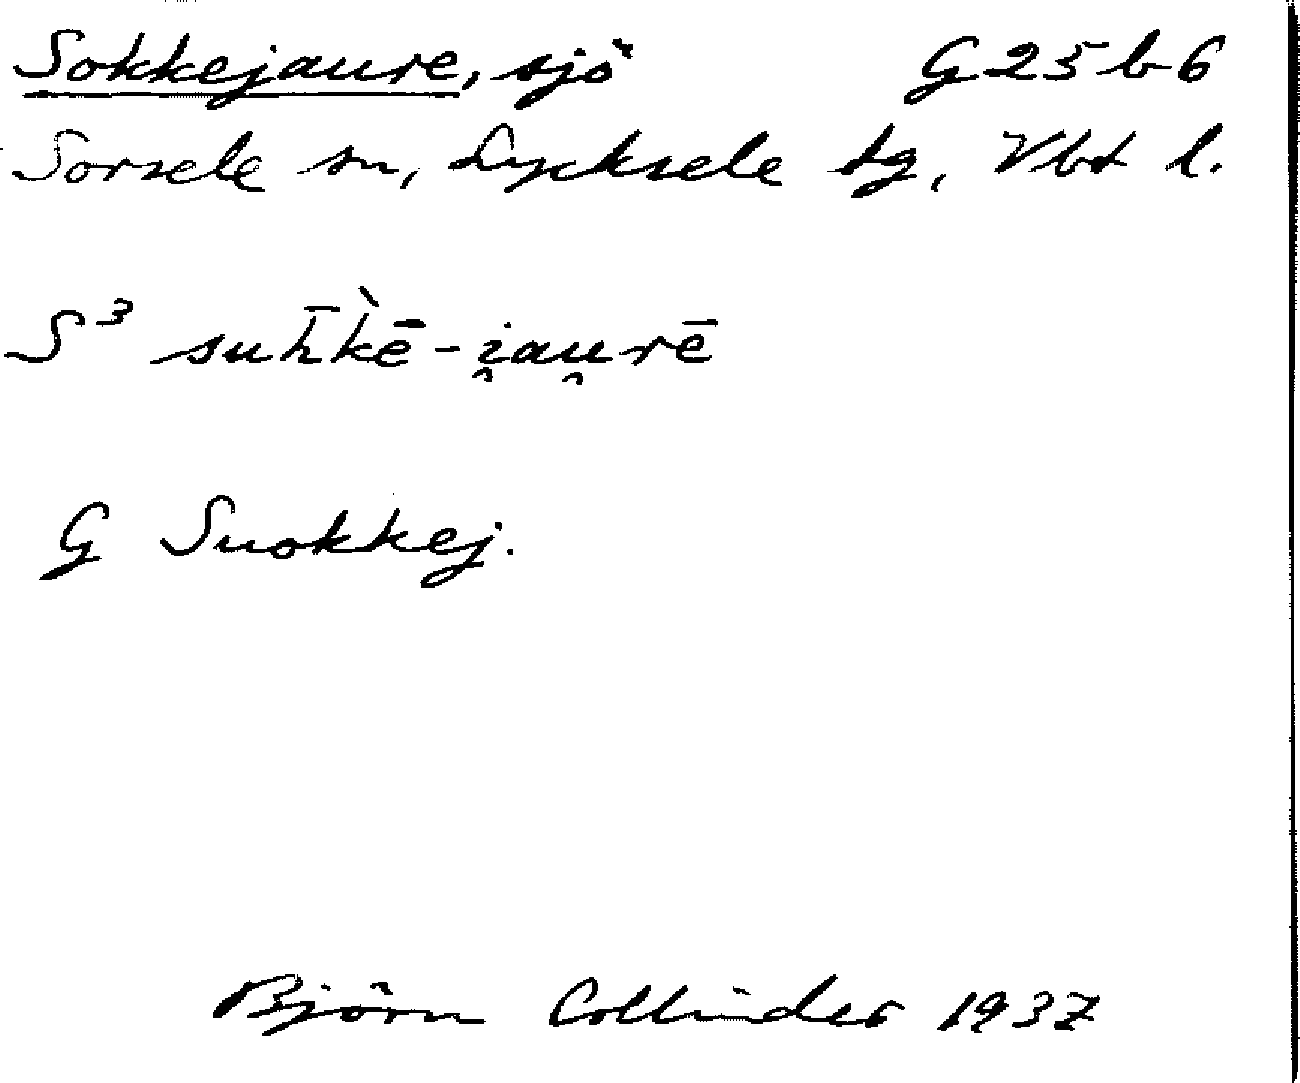 Sokkejaure, sjö G 25 b 6
Sorsele sn, Lycksele tg, Vbt l.
S³ suh̄k̀ē-i̯au̯rē
G Suokkej.
Björn Collinder 1937